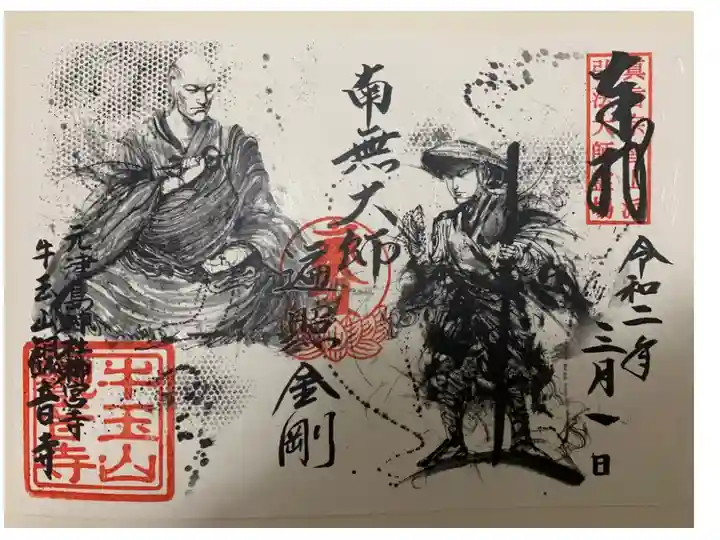 奉拝
令和二年
三月一日
南無大師
遍照金剛
元津島神社神宮寺
牛玉山観音寺
牛玉山
観音寺